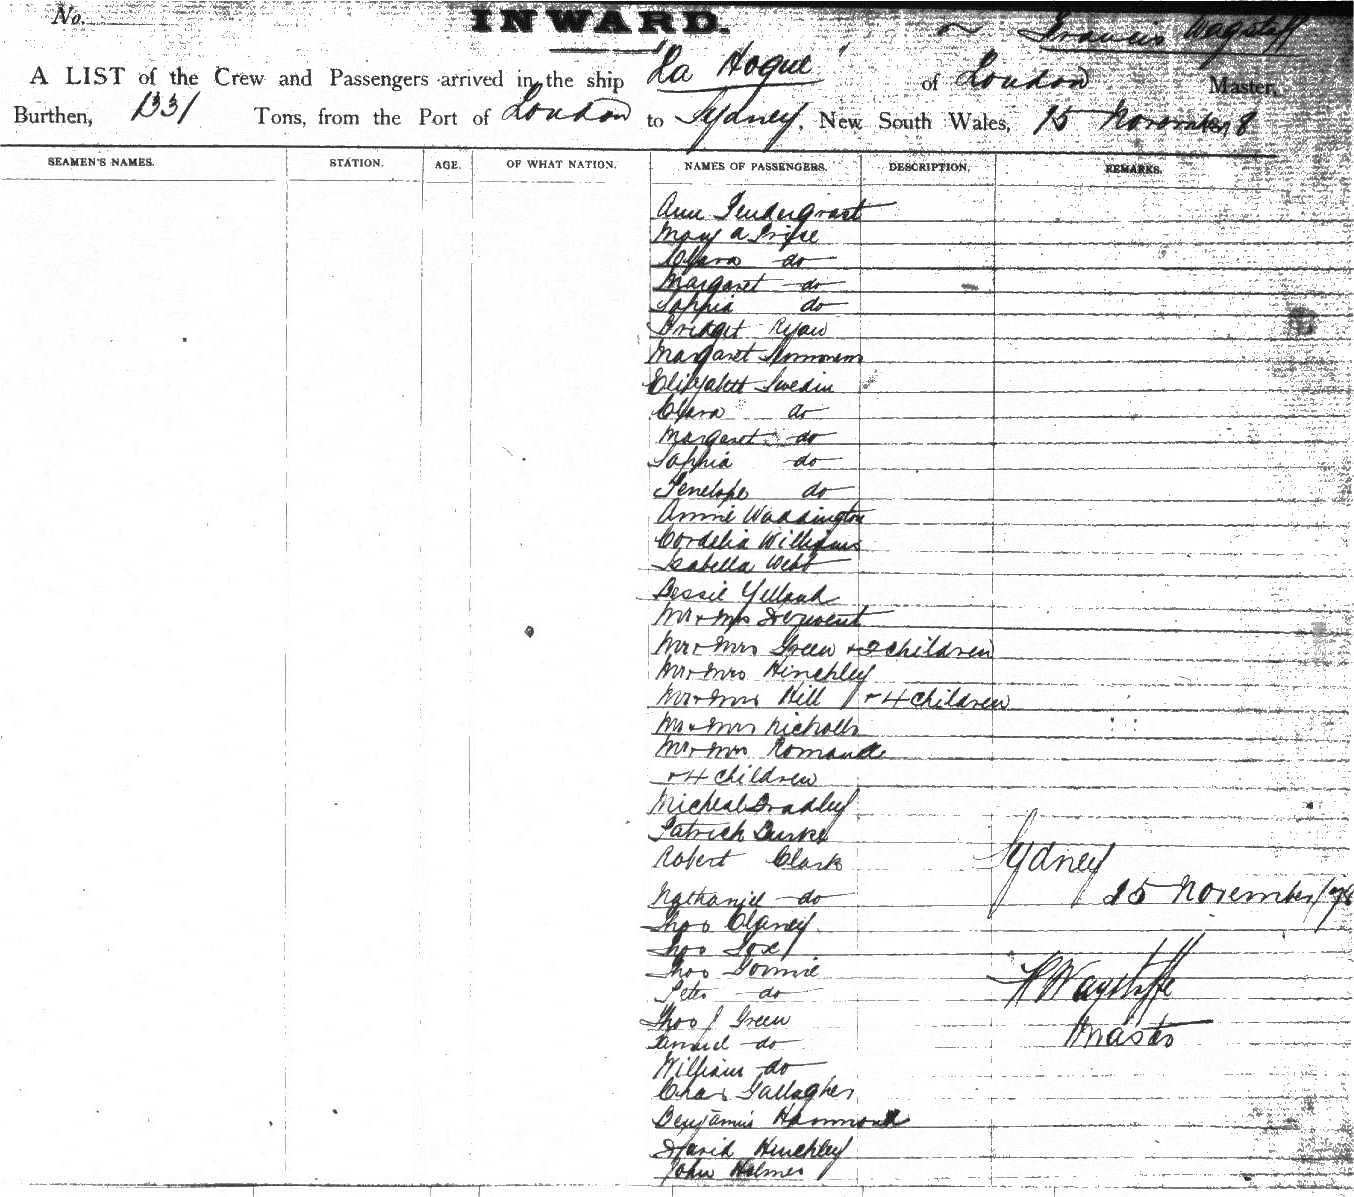 No.
INWARD.
Francis Wagstiff
A LIST of the Crew and Passengers arrived in the ship "La Hogue" of London Master,
Burthen, 1331 Tons, from the Port of London to Sydney, New South Wales, 15 November 8
SEAMEN'S NAMES. STATION. AGE. OF WHAT NATION. NAMES OF PASSENGERS. DESCRIPTION. REMARKS.
Ann Pendergrast
Mary a
Clara do
Margaret do
Sophia do
Bridget Ryan
Margaret
Elizabeth Swedin
Clara do
Margaret do
Sophia do
Penelope do
Annie Waddington
Cordelia Williams
Isabella Webb
Bessie Yelland
Mr & Mrs Derwent
Mr & Mrs Green & 2 children
Mr & Mrs Hinchley
Mr & Mrs Hill & 4 children
Mr & Mrs Nicholls
Mr & Mrs
& 4 children
Micheal Bradley
Patrick Burke
Robert Clark
Sydney
Nathaniel do
15 November
Thos Clancy
Thos
Thos
Peter do
F Wagstiffe
Thos J Green
Master
do
William do
Chas Gallagher
Benjamin Hammond
David Hinchley
John Holmes